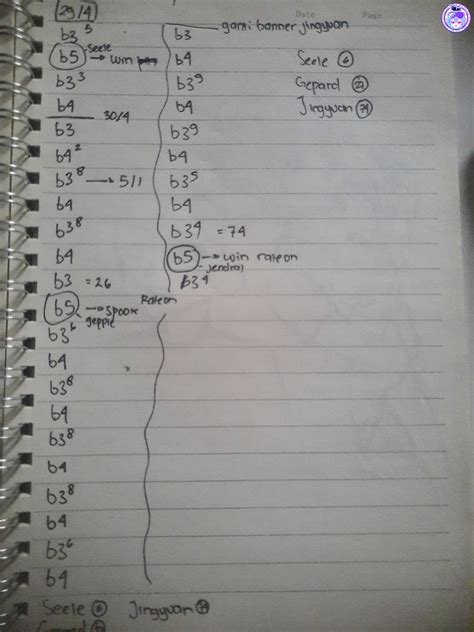 29/4
b3 5
b5 Seele → win
b3 3
b4
30/4
b3
b4 2
b3 8 → 5/1
b4
b3 8
b4
b3 = 26
b5 → spook geppie
Rateon
b3 6
b4
b3 8
b4
b3 8
b4
b3 8
b4
b3 6
b4
Seele 6 Jingyuan 74
Gepard
Date Page
b3 ganti banner jingyuan
b4
b3 9
b4
b3 9
b4
b3 5
b4
b3 4 = 74
b5 → win rateon
jendral
b3 4
Seele 6
Gepard
Jingyuan 74